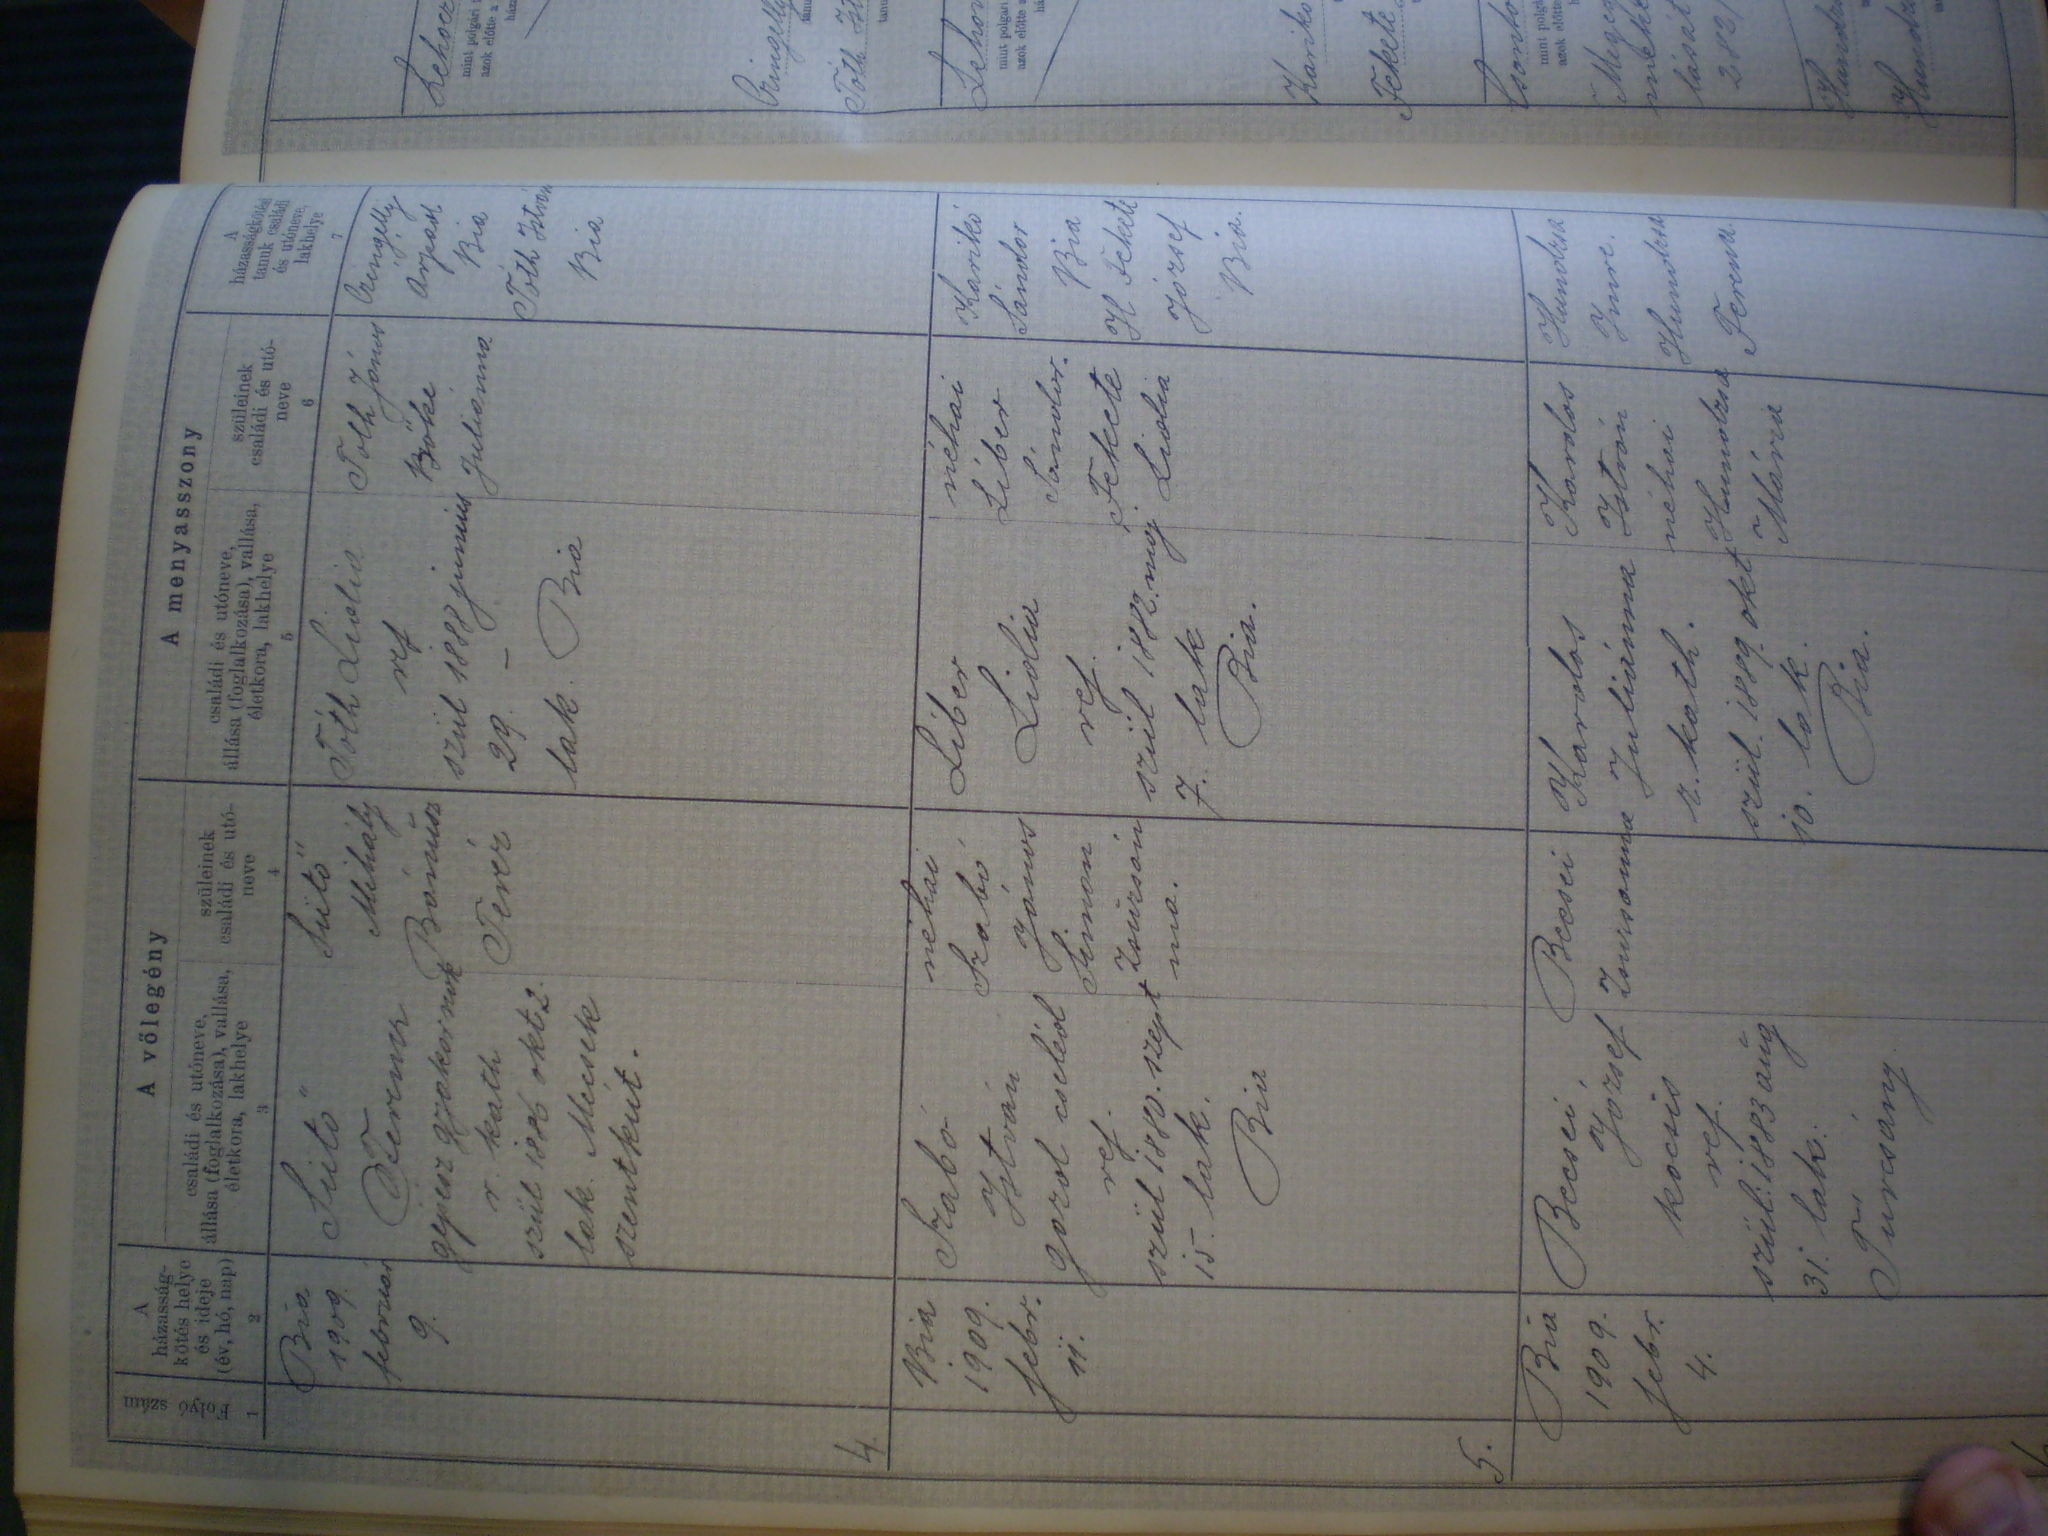 A vőlegény
A menyasszony
Folyó szám
1
A
házasság-
kötés helye
és ideje
(év, hó, nap)
2
családi és utóneve,
állása (foglalkozása), vallása,
életkora, lakhelye
3
szüleinek
családi és utó-
neve
4
családi és utóneve,
állása (foglalkozása), vallása,
életkora, lakhelye
5
szüleinek
családi és utó-
neve
6
A
házasságkötési
tanuk családi
és utóneve,
lakhelye
7
Bia
1909.
február
9.
Sütő
Ferencz
gépész
r. kath.
szül 1886 okt 2.
lak. Mecsek
szentkút.
Sütő
Mihály
Bónusz
Teréz
Tóth Lidia
ref
szül 1888 junius
29. –
lak. Bia
Tóth János
Böke
Julianna
Árpád
Bia
Tóth István
Bia
4.
Bia
1909.
febr.
11.
Szabó
István
gazd cseléd
ref.
szül 1880. szept
15. lak.
Bia
néhai
Szabó
János
Simon
Zsuzsán
na.
Liber
Lidia
ref.
szül 1882. máj
7. lak
Bia.
néhai
Liber
Sándor.
Fekete
Lidia
Karikó
Sándor
Bia
H Fekete
József
Bia.
5.
Bia
1909.
febr.
4.
Becsei
József
kocsis
ref.
szül. 1883 aug
31. lak.
Turcsány.
Becsei
Zsuzsanna
Karolos
Juliánna
r. kath.
szül. 1889. okt
10. lak.
Bia.
Karolos
István
néhai
Hundzsa
Mária
Hundzsa
Imre.
Hundzsa
Ferencz.
mint polgári
azok előtte a
Tóth Ist
mint polgári
azok előtte a
Karikó
Fekete
mint polgá
azok előtte